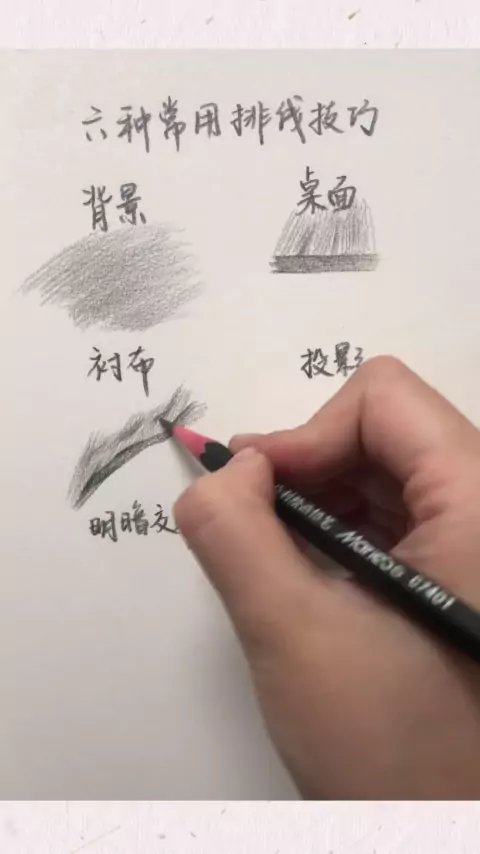 六种常用排线技巧
背景
桌面
衬布
投影
明暗交
Marco 67401